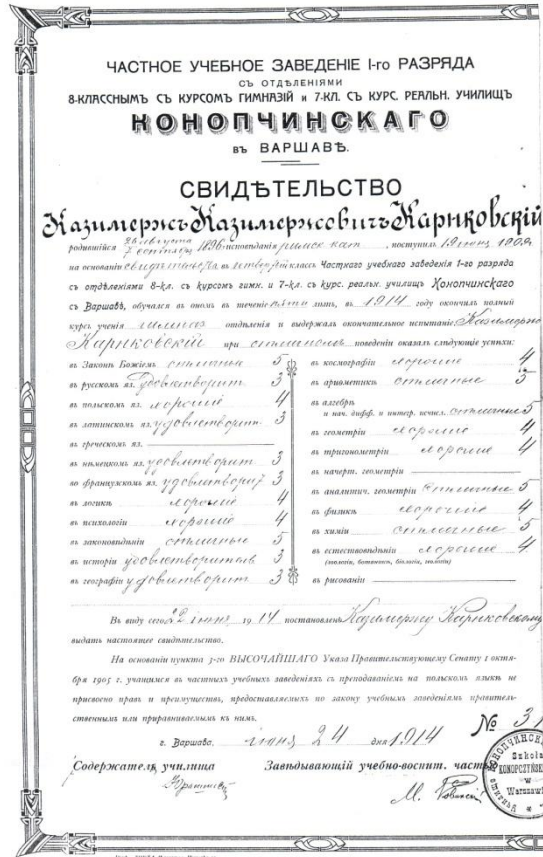 ЧАСТНОЕ УЧЕБНОЕ ЗАВЕДЕНІЕ I-го РАЗРЯДА
СЪ ОТДѢЛЕНІЯМИ
8-КЛАССНЫМЪ СЪ КУРСОМЪ ГИМНАЗІЙ и 7-КЛ. СЪ КУРС. РЕАЛЬН. УЧИЛИЩЪ
КОНОПЧИНСКАГО
въ ВАРШАВѢ.
СВИДѢТЕЛЬСТВО
Казимержъ Казимержовичъ Карнковскій
родившійся 26 августа 7 сентября 1896 исповѣданія римск кат, поступилъ 1909
на основаніи свидѣтельства въ четвертый классъ Частнаго учебнаго заведенія 1-го разряда
съ отдѣленіями 8-кл. съ курсомъ гимн. и 7-кл. съ курс. реальн. училищъ Конопчинскаго
съ Варшавѣ, обучался въ ономъ въ теченіе пяти лѣтъ, въ 1914 году окончилъ полный
курсъ ученія отдѣленія и выдержалъ окончательное испытаніе. Казимержъ
Карнковскій при отличномъ поведеніи оказалъ слѣдующіе успѣхи:
въ Законѣ Божіемъ отличные 5
въ русскомъ яз. удовлетворит 3
въ польскомъ яз. хорошіе 4
въ латинскомъ яз. удовлетворит. 3
въ греческомъ яз.
въ нѣмецкомъ яз. удовлетворит 3
во французскомъ яз. удовлетворит 3
въ логикѣ хорошіе 4
въ психологіи хорошіе 4
въ законовѣдѣніи отличные 5
въ исторіи удовлетворительн 3
въ географіи удовлетворит 3
въ космографіи хорошіе 4
въ ариѳметикѣ отличные 5
въ алгебрѣ
и нач. дифф. и интегр. исчисл. отличные 5
въ геометріи хорошіе 4
въ тригонометріи хорошіе 4
въ начерт. геометріи
въ аналитич. геометріи отличные 5
въ физикѣ хорошіе 4
въ химіи отличные 5
въ естествовѣдѣніи хорошіе 4
(зоологіи, ботаники, біологіи, геологіи)
въ рисованіи
Въ виду сего 22 іюня 1914 постановлено Казимержу Карнковскому
выдать настоящее свидѣтельство.
На основаніи пункта 3-го ВЫСОЧАЙШАГО Указа Правительствующему Сенату 1 октя-
бря 1905 г. учащимся въ частныхъ учебныхъ заведеніяхъ съ преподаваніемъ на польскомъ языкѣ не
присвоено правъ и преимуществъ, предоставляемыхъ по закону учебнымъ заведеніямъ правитель-
ственнымъ или приравниваемымъ къ нимъ.
№ 31
г. Варшава. іюня 24 дня 1914
Содержатель училища Завѣдывающій учебно-воспит. частью
Szkoła
KONOPCZYŃSKIEGO
w
Warszawie